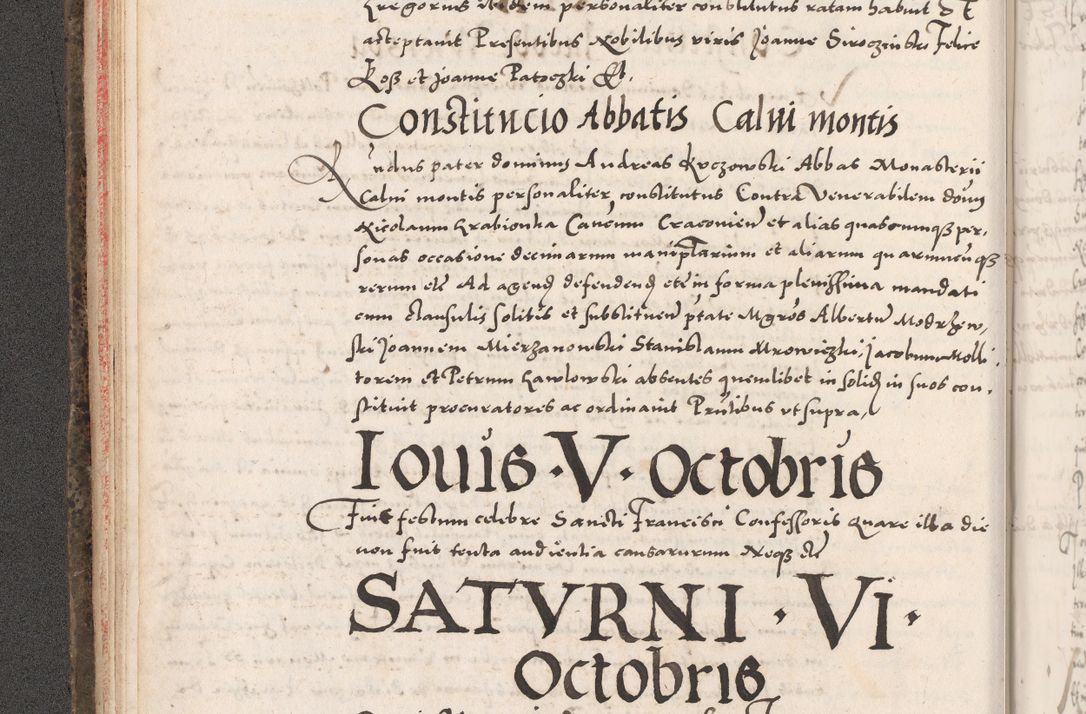 Gregorius ibidem personaliter constitutus ratam habuit Et
acceptavit Presentibus Nobilibus viris Joanne Siroczinski Felice
Kosz et Joanne Patoczki Et.
Constitucio Abbatis Calvi montis
Rndus pater dominus Andreas Krczowski Abbas Monasterii
Calvi montis personaliter constitutus Contra Venerabilem dom
Nicolaum Hrabionka Canonm Cracovien et alias quascumq per,
sonas occasione decimarum manipl'arium et aliarum quarumcuq
rerum etc Ad agend defendend etc in forma plenissima mandati
cum clausulis solitis et substituen ptate Mgros Albertu Modrzew,
ski Joannem Mierzanowski Stanislaum Mrowiczki, Jacobum Molli
torem et Petrum Hawlowski absentes quemlibet in solid in suos con,
stituit procuratores ac ordinavit Pntibus ut supra,
Iouis · V · Octobris
Fuit festum celebre Sancti Francisci Confessoris Quare illa die
non fuit tenta audientia causarurum Neq etc
SATVRNI · VI ·
Octobris